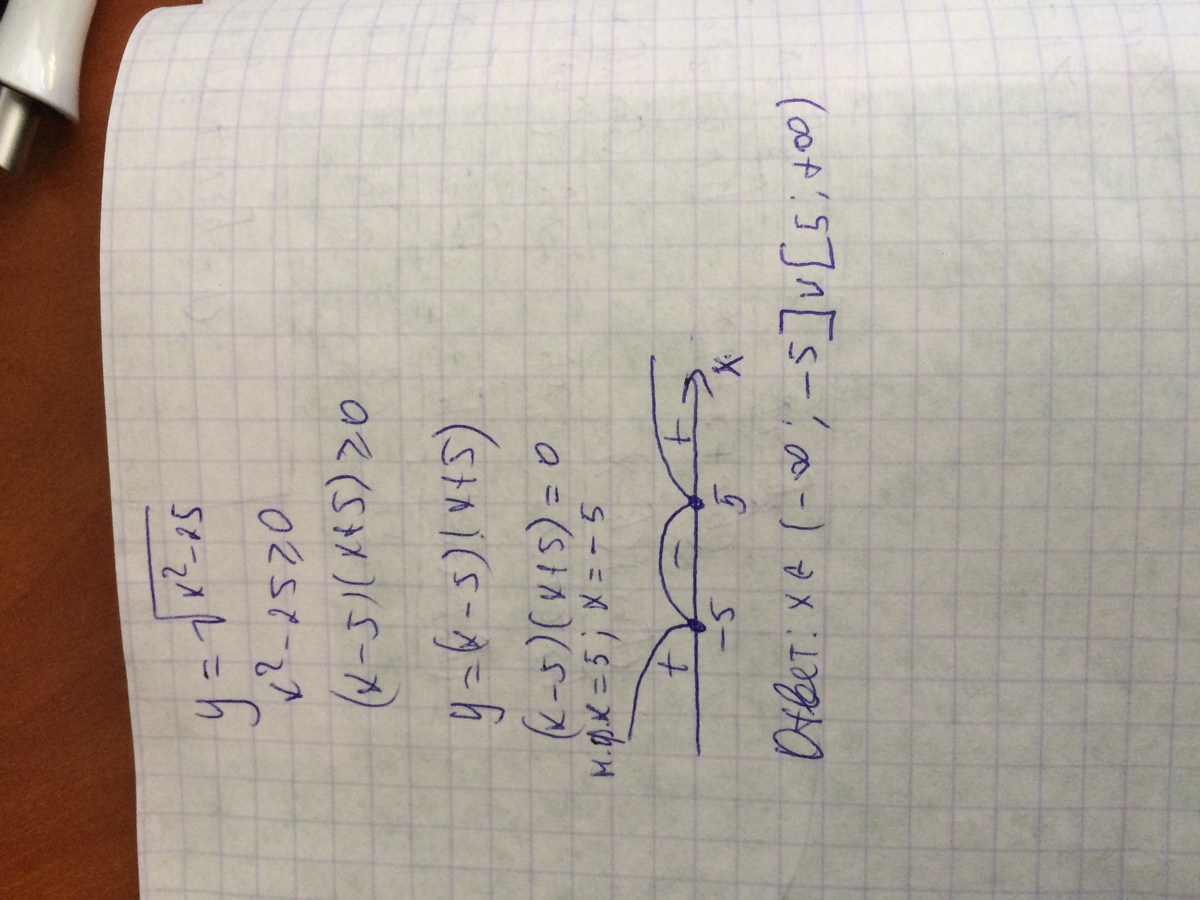 y = √x²-25
x² - 25 ≥ 0
(x-5)(x+5) ≥ 0
y = (x-5)(x+5)
(x-5)(x+5) = 0
н.ф. x = 5; x = -5
+ - +
-5 5 x
Ответ: x ∈ (-∞; -5] ∪ [5; +∞)